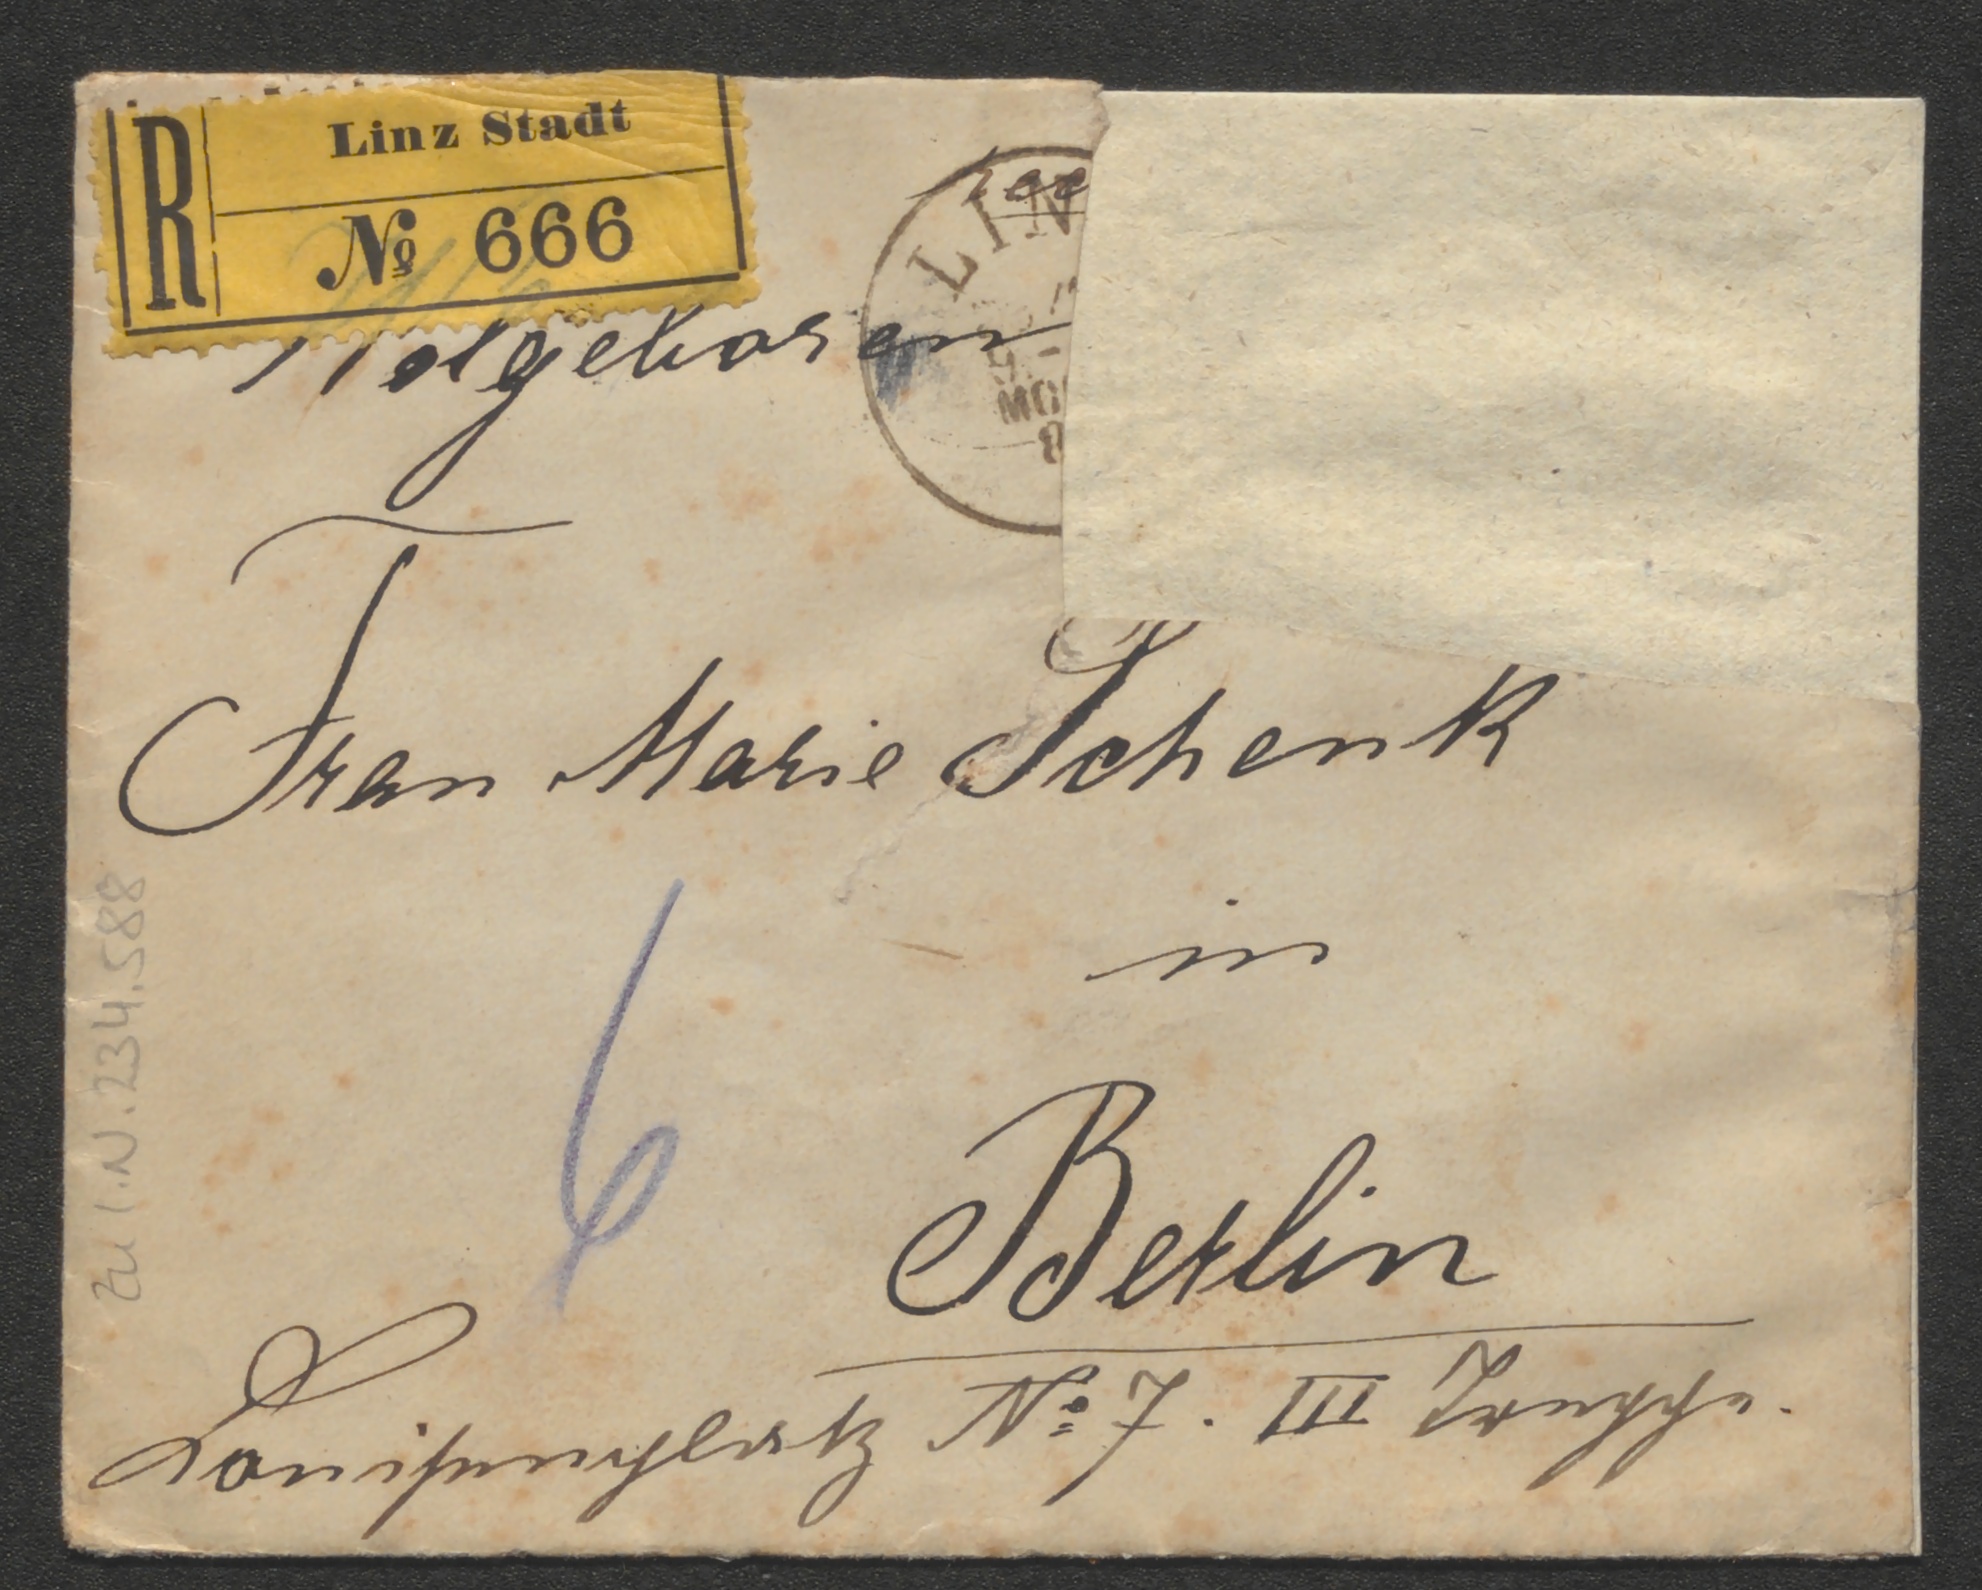 R
Linz Stadt
№ 666
LIN
MO
8
Frau Marie Schenk
in
Berlin
Louisenplatz No 7. III Treppe.
6
zu I.N. 234.588